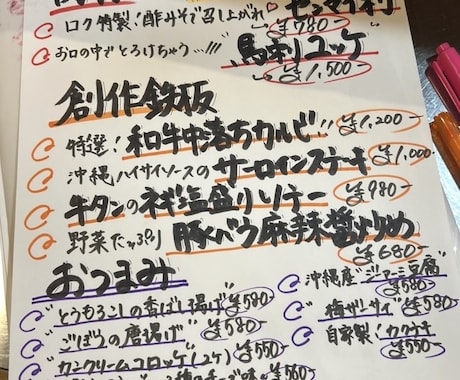 ロク特製！酢みそで召し上がれ センマイ刺 ¥780-
お口の中でとろけちゃう…!!! 馬刺しユッケ ¥1,500-
創作鉄板
特選！和牛中落ちカルビ!! ¥1,200-
沖縄ハイサイソースのサーロインステーキ ¥1,000-
牛タンのネギ塩盛りソテー ¥980-
野菜たっぷり 豚バラ麻辣醤炒め ¥680-
おつまみ
"とうもろこしの香ばし揚げ" ¥580-
"ごぼうの唐揚げ" ¥580-
"カニクリームコロッケ(2ヶ) ¥550-
種のチーズ味 ¥560-
沖縄産"ジーマーミ豆腐" ¥580-
"梅ザーサイ" ¥580-
自家製"カクテキ ¥550-